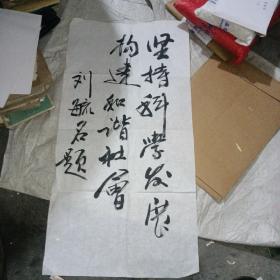 坚持科学发展
构建和谐社會
刘毓名题